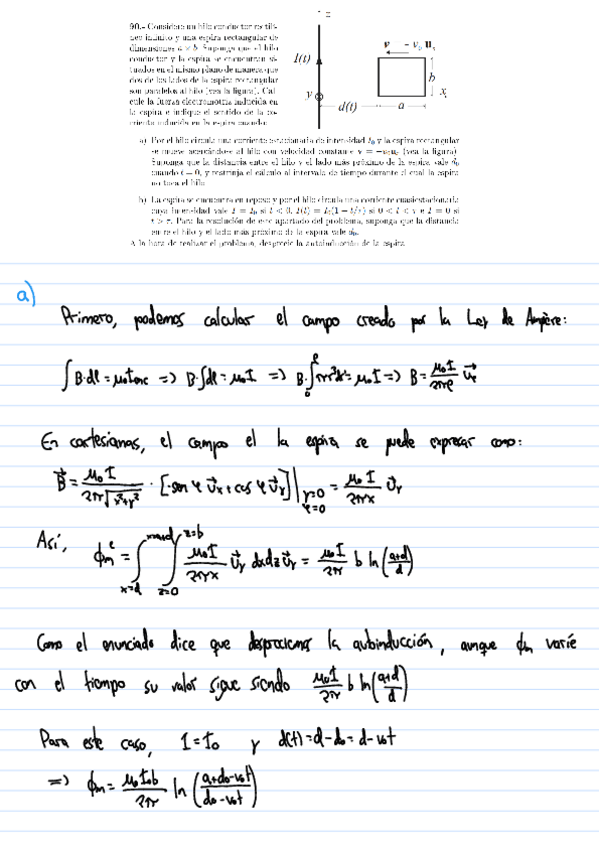 90.- Considere un hilo conductor rectilí-
neo infinito y una espira rectangular de
dimensiones a × b. Suponga que el hilo
conductor y la espira se encuentran si-
tuados en el mismo plano de manera que
dos de los lados de la espira rectangular
son paralelos al hilo (vea la figura). Cal-
cule la fuerza electromotriz inducida en
la espira e indique el sentido de la co-
rriente inducida en la espira cuando:
z
I(t)
v = -v₀ uₓ
b
y
x
d(t)
a
a) Por el hilo circula una corriente estacionaria de intensidad I₀ y la espira rectangular
se mueve acercándose al hilo con velocidad constante v = -v₀uₓ (vea la figura).
Suponga que la distancia entre el hilo y el lado más próximo de la espira vale d₀
cuando t = 0, y restrinja el cálculo al intervalo de tiempo durante el cual la espira
no toca el hilo.
b) La espira se encuentra en reposo y por el hilo circula una corriente cuasiestacionaria
cuya intensidad vale I = I₀ si t < 0, I(t) = I₀(1 - t/τ) si 0 < t < τ e I = 0 si
t > τ. Para la resolución de este apartado del problema, suponga que la distancia
entre el hilo y el lado más próximo de la espira vale d₀.
A la hora de realizar el problema, desprecie la autoinducción de la espira.
a)
Primero, podemos calcular el campo creado por la Ley de Ampère:
∫B·dl = μ₀Ienc => B·∫dl = μ₀I => => B = μ₀I/2πρ
En cartesianas, el campo el la espira se puede expresar como:
B⃗ = μ₀I/2π√(x²+y²) · [-sen φ u⃗ₓ + cos φ u⃗ᵧ] |y=0 φ=0 = μ₀I/2πx u⃗ᵧ
Así, ϕₘᵉ = ∫x=d ∫z=0 z=b μ₀I/2πx u⃗ᵧ dxdz u⃗ᵧ = μ₀I/2π b ln(a+d/d)
Como el enunciado dice que despreciemos la autoinducción, aunque ϕₘ varíe
con el tiempo su valor sigue siendo μ₀I/2π b ln(a+d/d)
Para este caso, I=I₀ y d(t)=d-d₀=d-v₀t
=> ϕₘ = μ₀I₀b/2π ln(a+d₀-v₀t/d₀-v₀t)